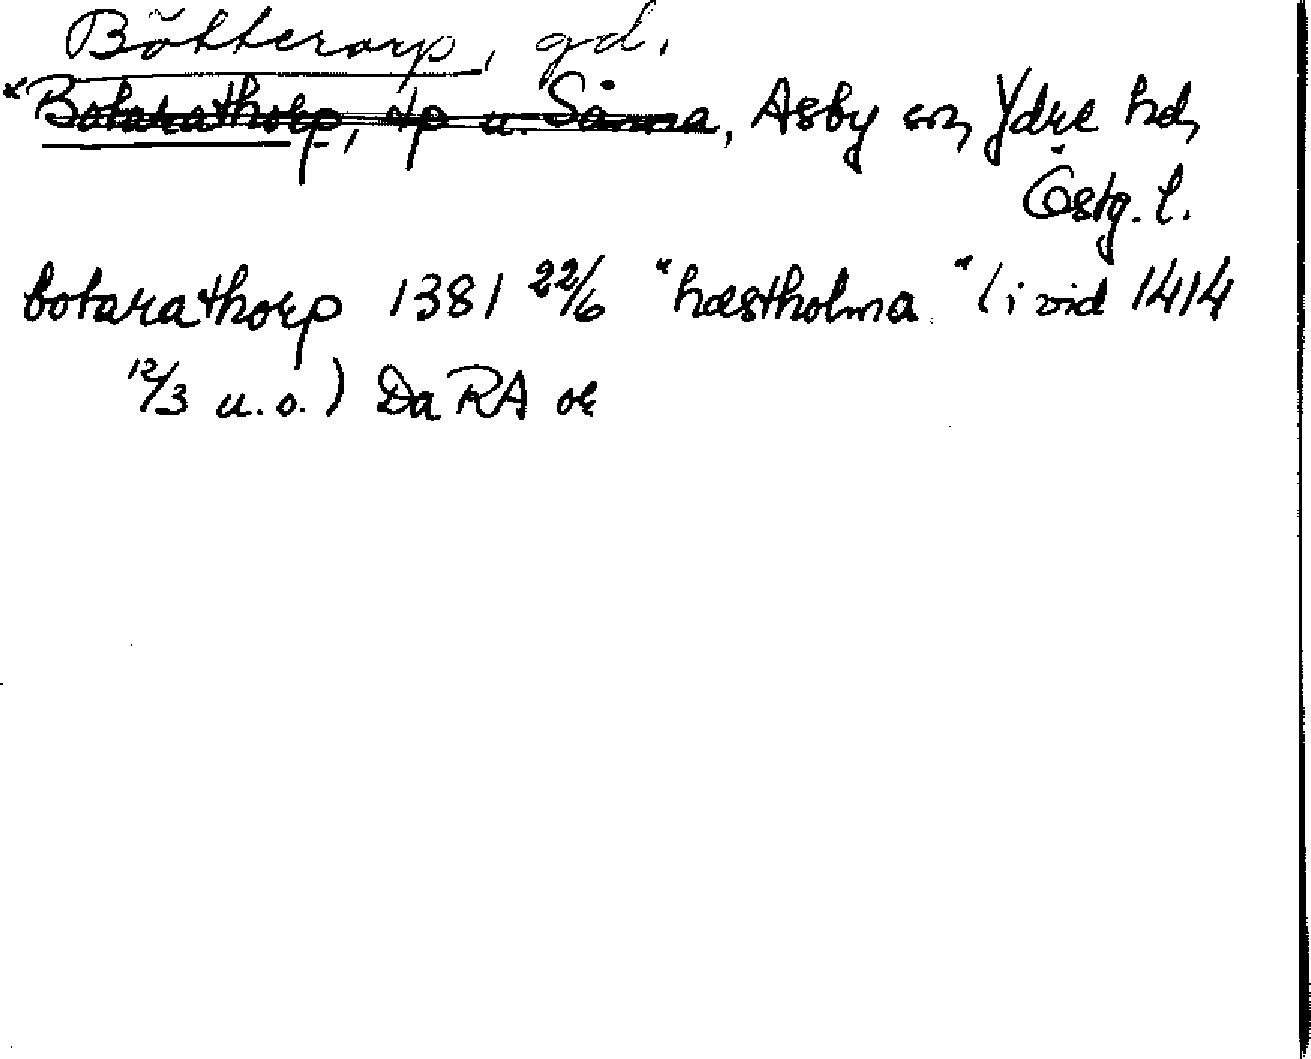 Bötterorp, gd.
*Botarathorp, tp u. Sånna, Asby sn, Ydre hd,
Östg. l.
botarathorp 1381 22/6 "hæstholma" (i vid 1414
12/3 u.o.) Da RA or